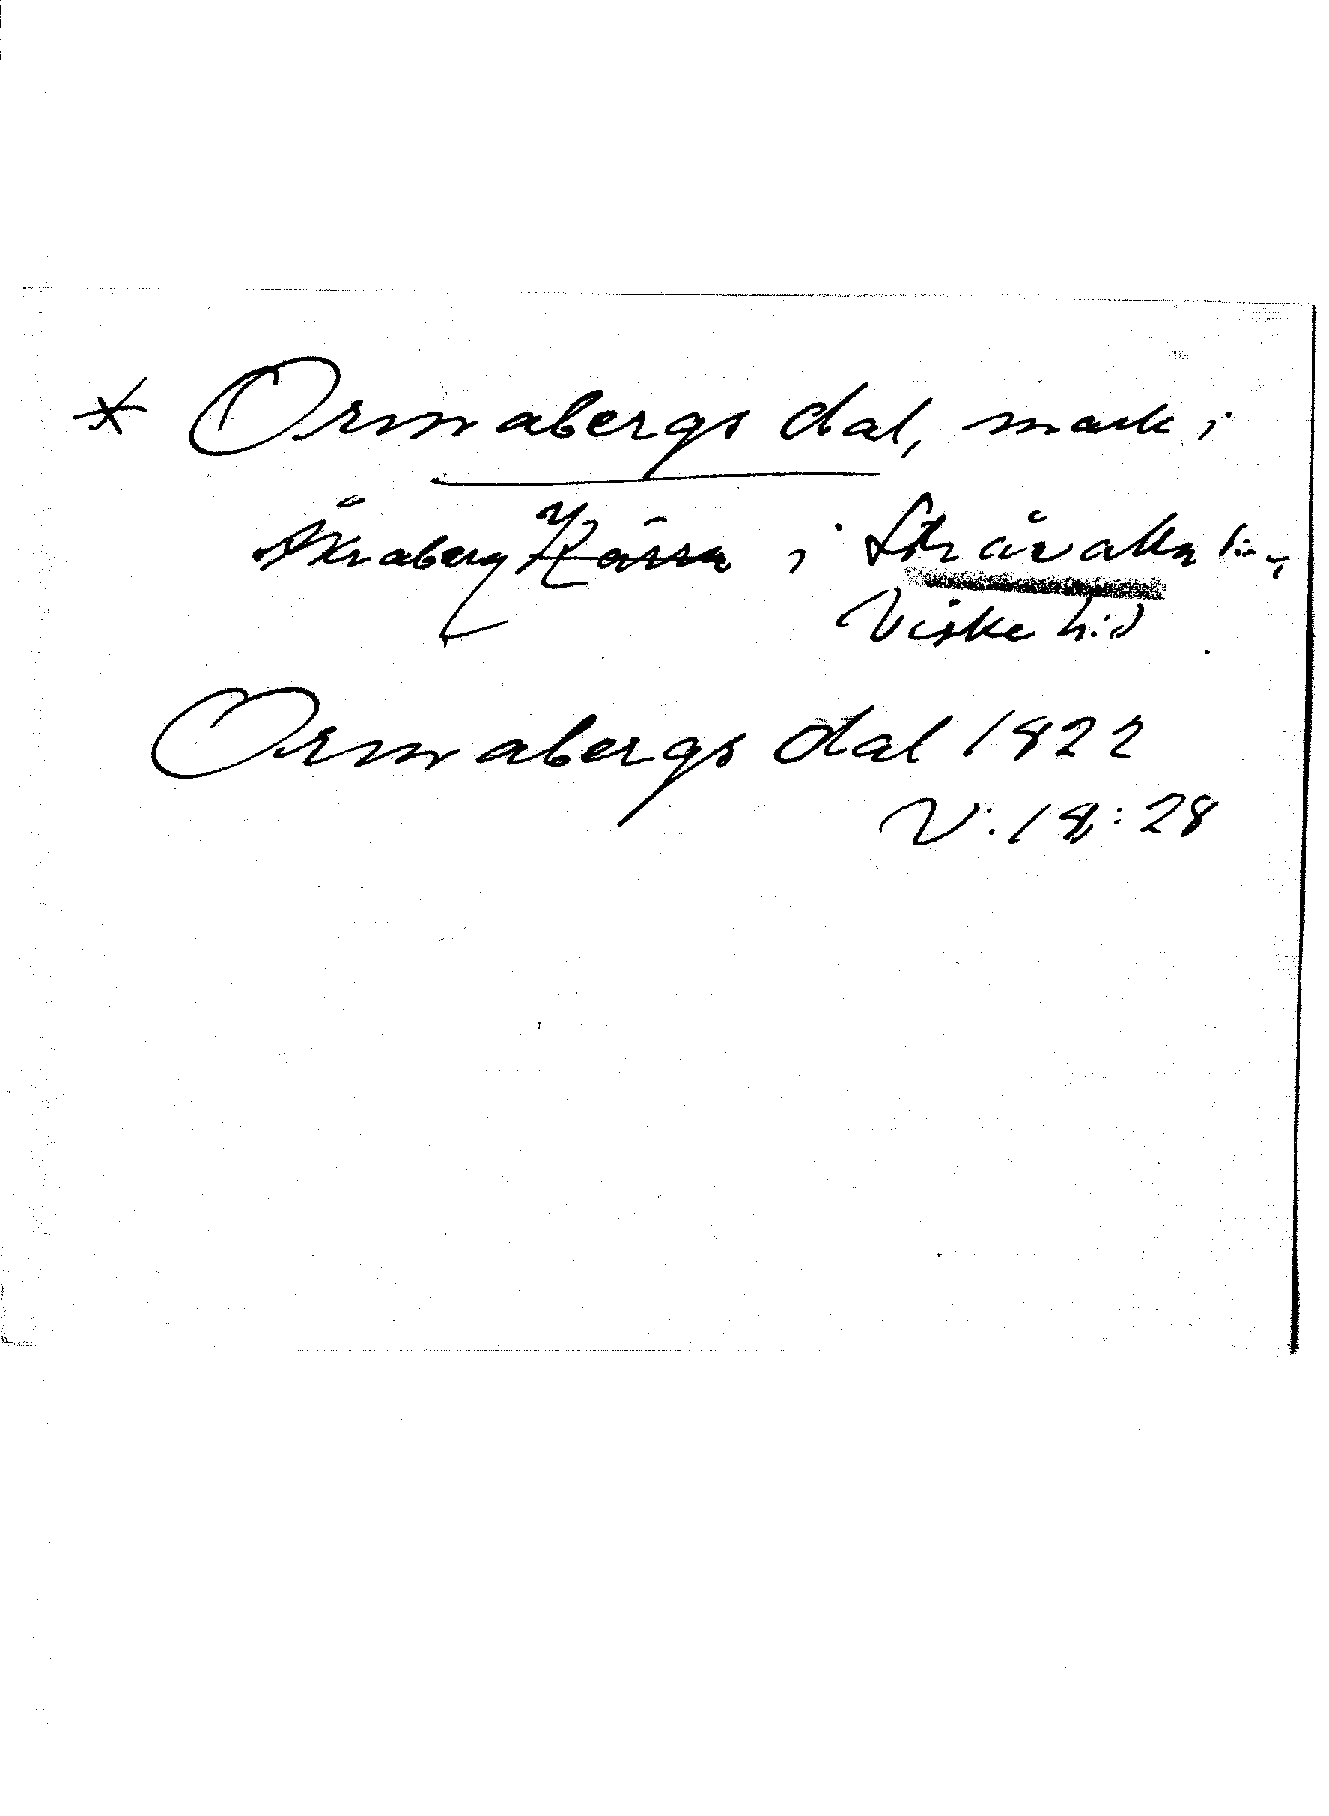 * Ormabergs dal, mark i
Åkraberg Kärra i Stråvalla sn,
Viske hd
Ormabergs dal 1822
V:18:28